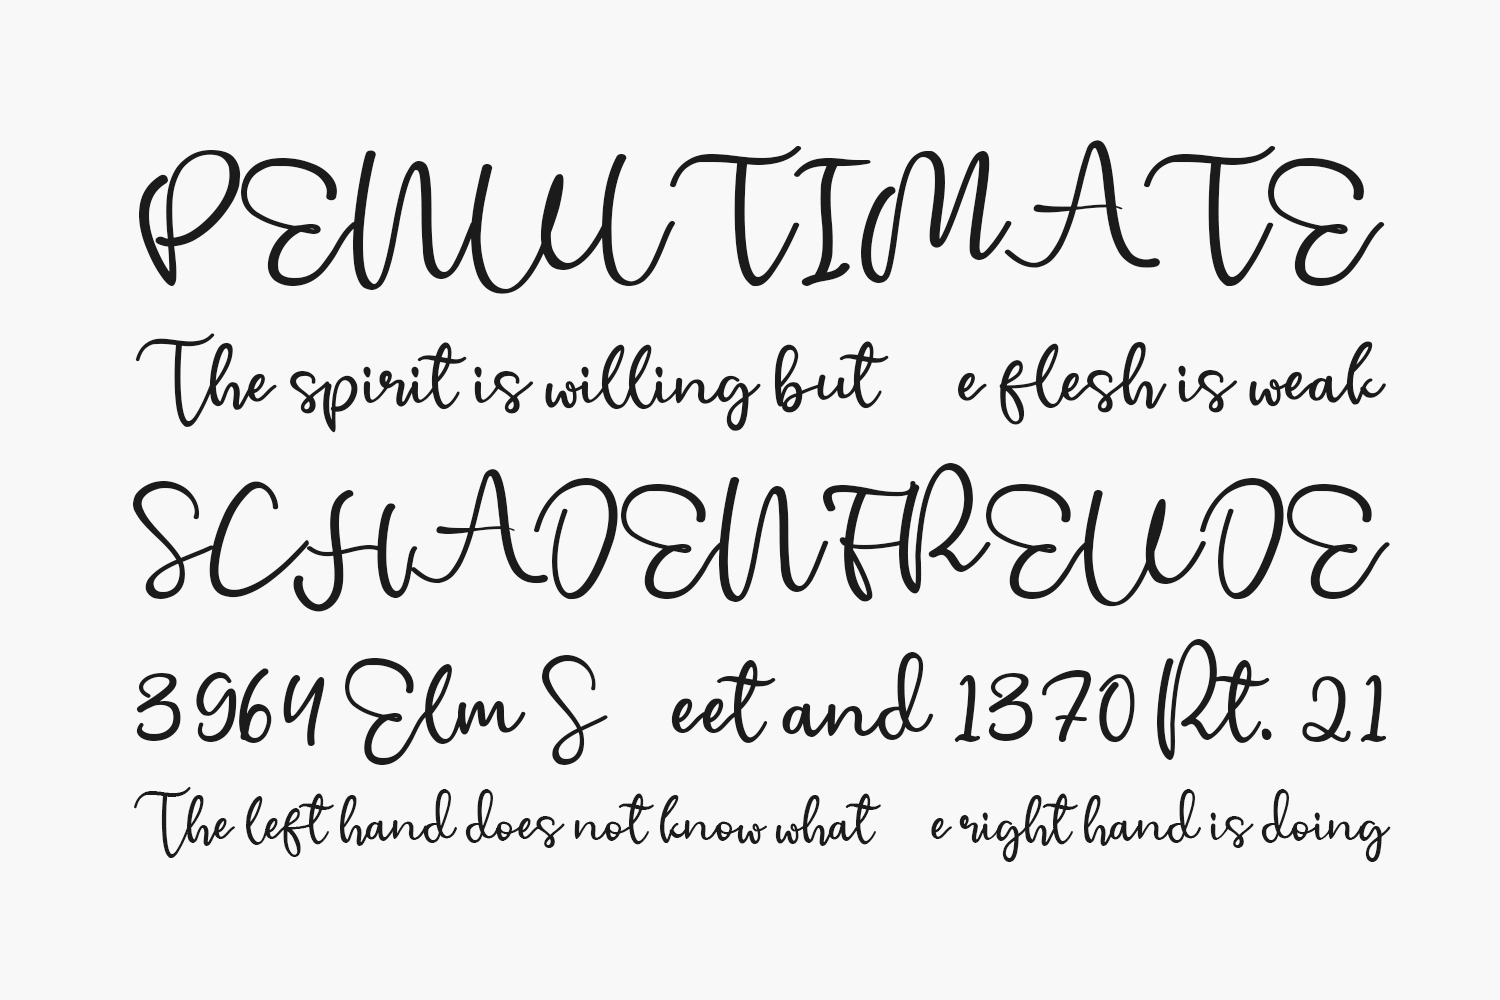 PENULTIMATE
The spirit is willing but e flesh is weak
SCHADENFREUDE
3964 Elm S eet and 1370 Rt. 21
The left hand does not know what e right hand is doing